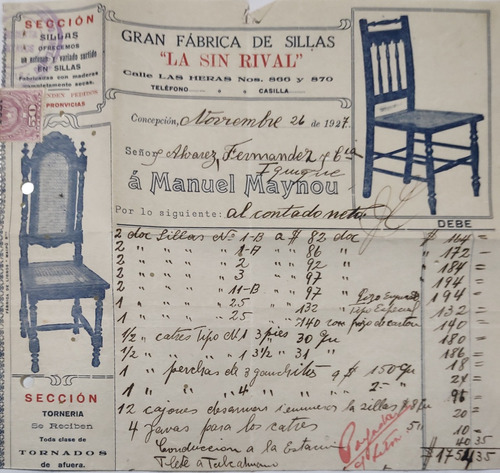 SECCIÓN
SILLAS
OFRECEMOS
un extenso y variado surtido
EN SILLAS
Fabricadas con maderas
completamente secas.
PEDIDOS
PROVINCIAS
50
GRAN FÁBRICA DE SILLAS
"LA SIN RIVAL"
Calle LAS HERAS Nos. 860 y 870
TELÉFONO CASILLA
Concepción, Noviembre 26 de 1927.
Señor Alvarez, Fernandez y Cia
Iquique
á Manuel Maynou
Por lo siguiente: al contado neto
DEBE
2 doc Sillas No 1-B a $ 82 doc $ 164 =
2 " " 1-A " 86 " " 172 =
2 " " 2 " 92 " " 184 =
2 " " 3 " 97 " " 194 =
2 " " 11-B " 97 " " 194 =
1 " " 25 " 132 " Tipo Especial " 132 =
1 " " 25 " 140 con " 140 =
1/2 " catres Tipo No 1 3 pies 30 " 180 =
1/2 " " " " 1 3 1/2 " 31 " " 186 =
1 " perchas de 3 ganchitos a $ 1.50 " 18
1 " " " 4 " " 2 = "
12 cajones desarmar
4 Javas para los catres
Conduccion a la Estacion
Flete a Talcahuano
40 35
$ 1754 35
SECCIÓN
TORNERIA
Se Reciben
Toda clase de
TORNADOS
de afuera.